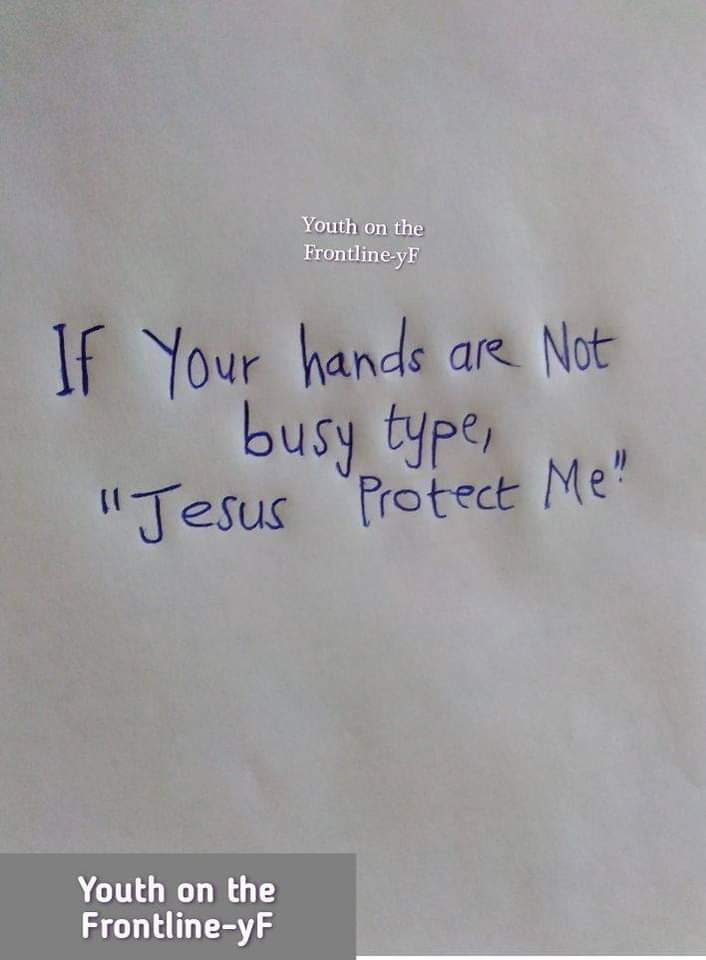 Youth on the
Frontline-yF
If Your hands are Not
busy type,
"Jesus Protect Me"
Youth on the
Frontline-yF